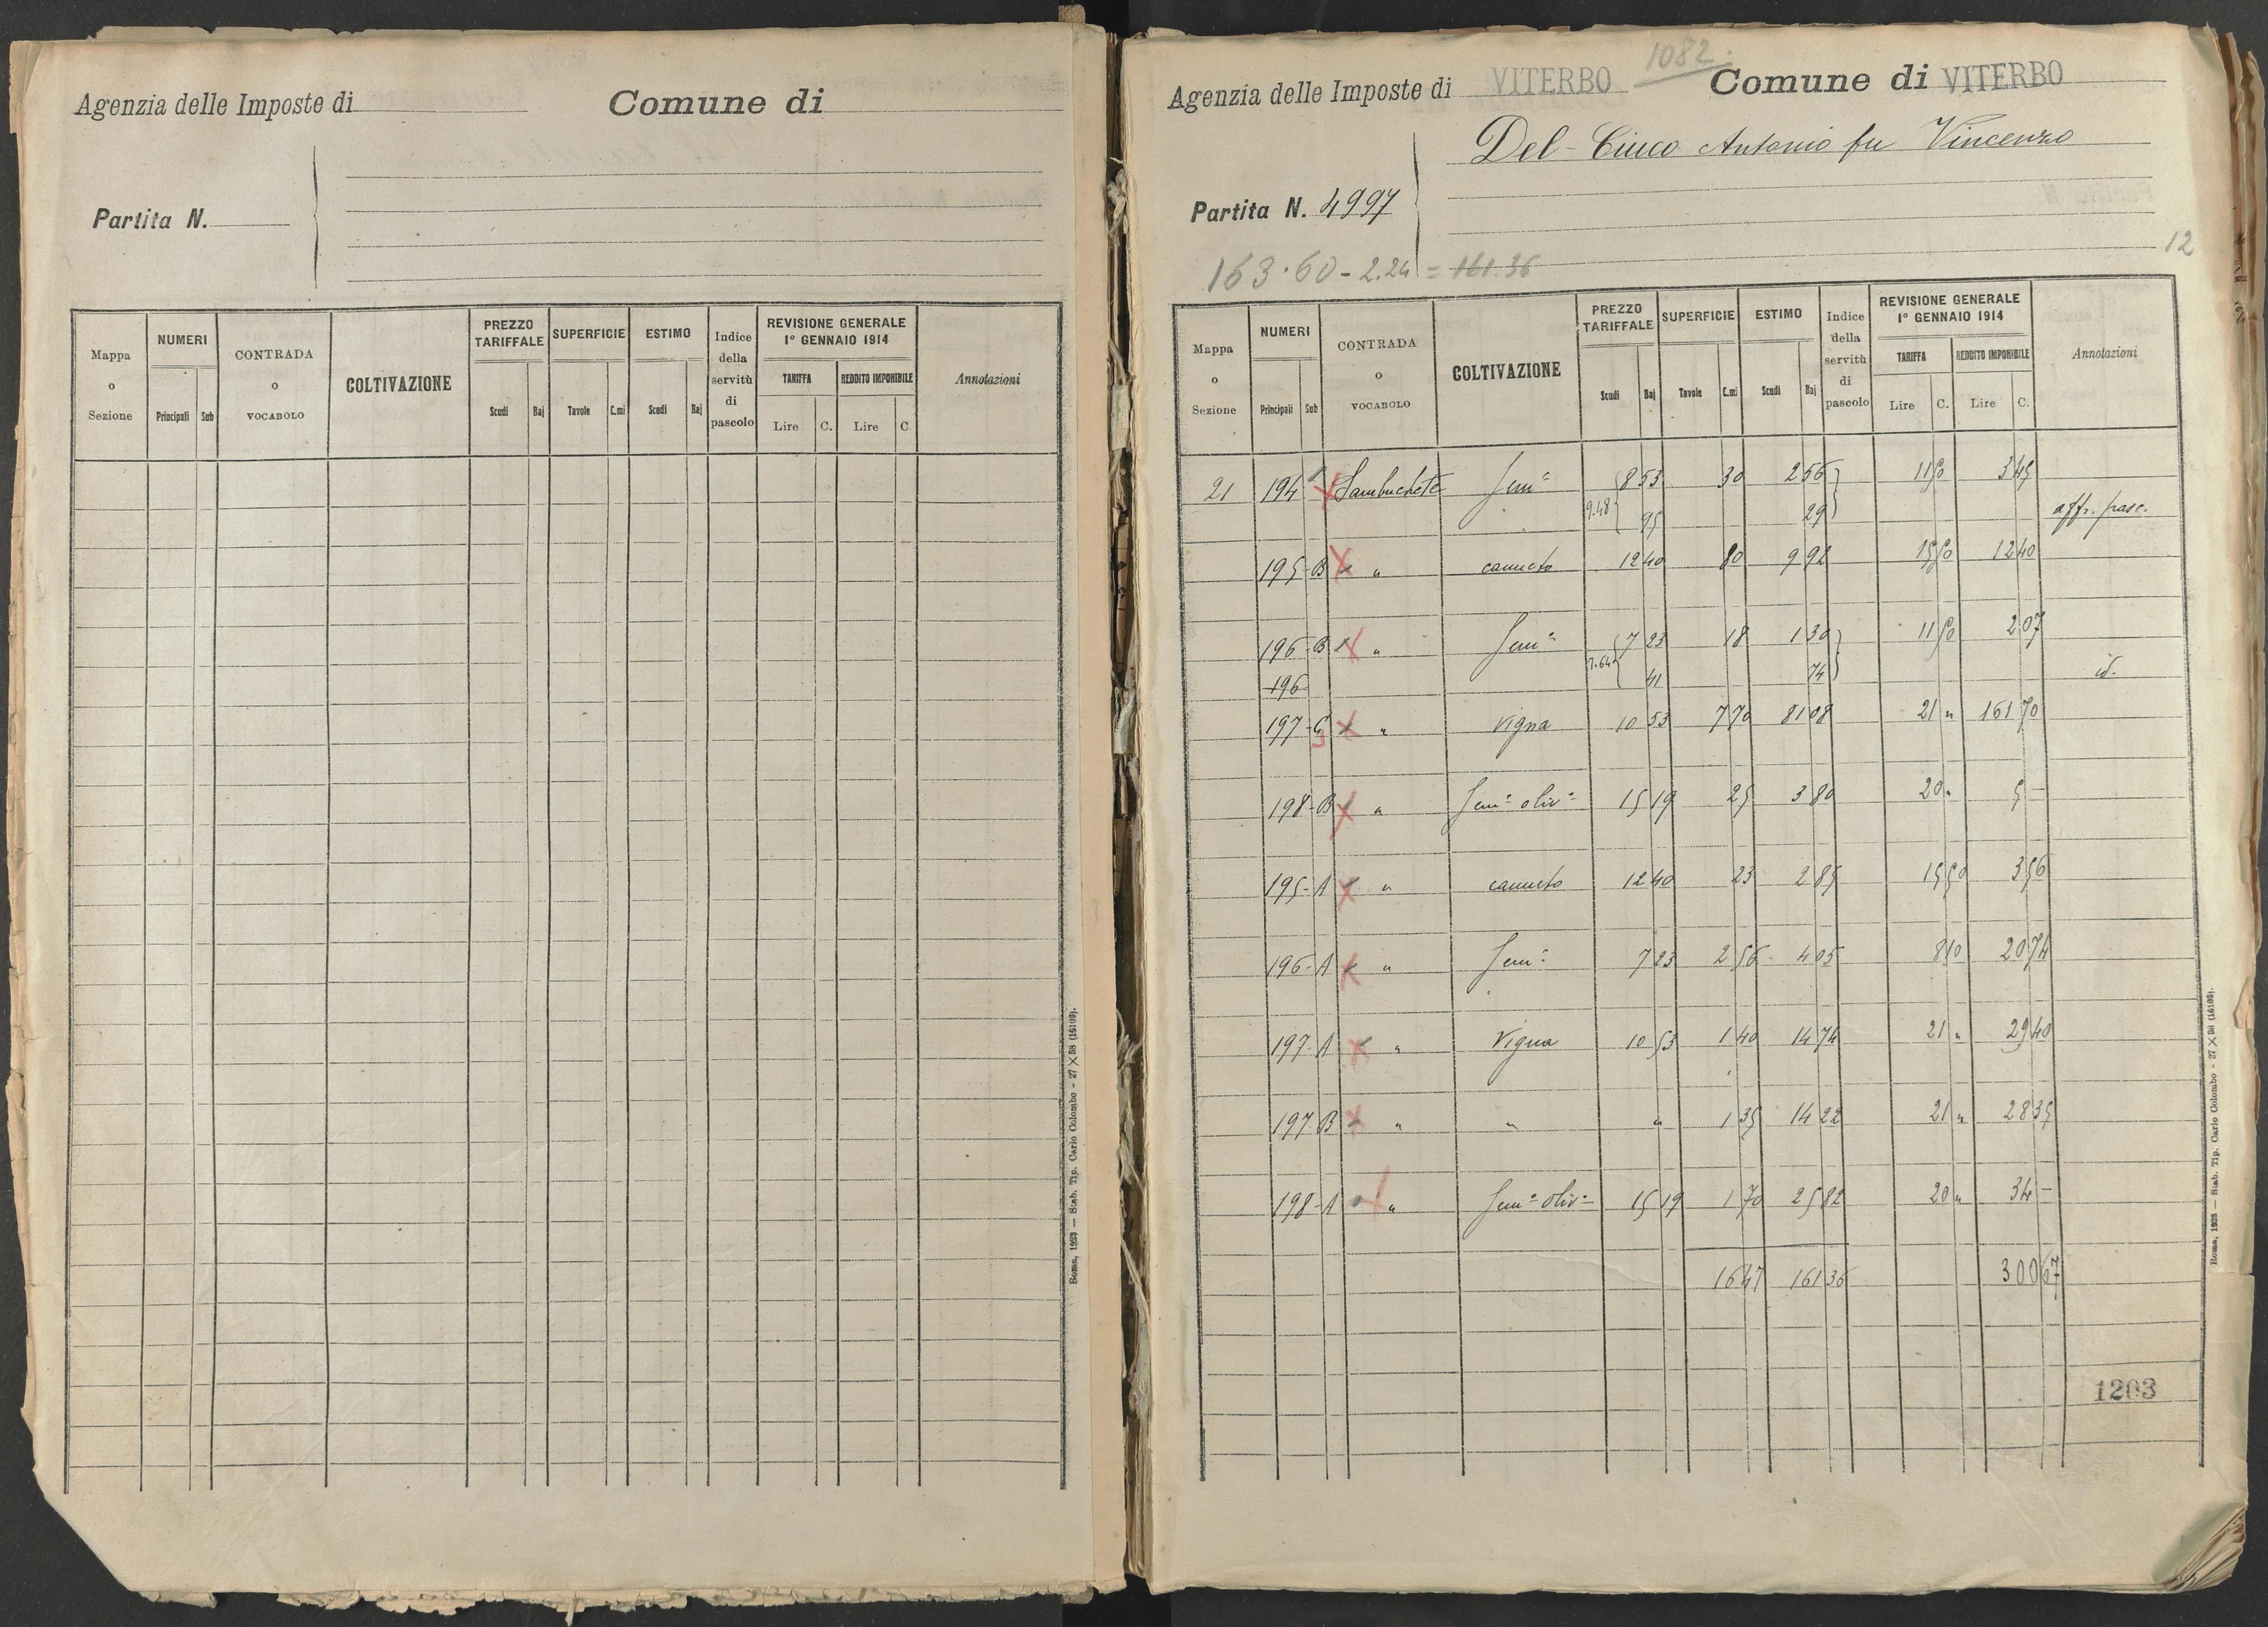 Agenzia delle Imposte di Comune di
Partita N.
Mappa o Sezione NUMERI Principali Sub CONTRADA o VOCABOLO COLTIVAZIONE PREZZO TARIFFALE Scudi Baj SUPERFICIE Tavole C.mi ESTIMO Scudi Baj Indice della servitù di pascolo REVISIONE GENERALE 1° GENNAIO 1914 TARIFFA Lire C. REDDITO IMPONIBILE Lire C Annotazioni
Roma, 1923 — Stab. Tip. Carlo Colombo - 27 X 38 (15105).
1082.
Agenzia delle Imposte di VITERBO Comune di VITERBO
Del-Ciuco Antonio fu Vincenzo
Partita N. 4997
12
163.60 - 2.24 = 161.36
Mappa o Sezione NUMERI Principali Sub CONTRADA o VOCABOLO COLTIVAZIONE PREZZO TARIFFALE Scudi Baj SUPERFICIE Tavole C.mi ESTIMO Scudi Baj Indice della servitù di pascolo REVISIONE GENERALE 1° GENNAIO 1914 TARIFFA Lire C. REDDITO IMPONIBILE Lire C. Annotazioni
21 194 Sambuchete Semo 8 53 30 2 56 11 50 3 45
9.48 95 29 aff. pasc.
195-B " canneto 12 40 80 9 92 15 50 12 40
196-B " Semo 7 23 18 1 30 11 50 2 07
196 7.64 41 74 id.
197-C " vigna 10 53 7 70 81 08 21 " 161 70
198-B " Semo olivo 15 19 25 3 80 20 " 5 -
195-A " canneto 12 40 23 2 85 15 50 3 56
196-A " Semo 7 23 2 56 4 05 8 10 20 74
197-A " Vigna 10 53 1 40 14 74 21 " 29 40
197-B " " " 1 35 14 22 21 " 28 35
198-A " Semo olivo 15 19 1 70 25 82 20 " 34 -
16 47 161 36 300 67
1203
Roma, 1923 — Stab. Tip. Carlo Colombo - 27 X 38 (15105).